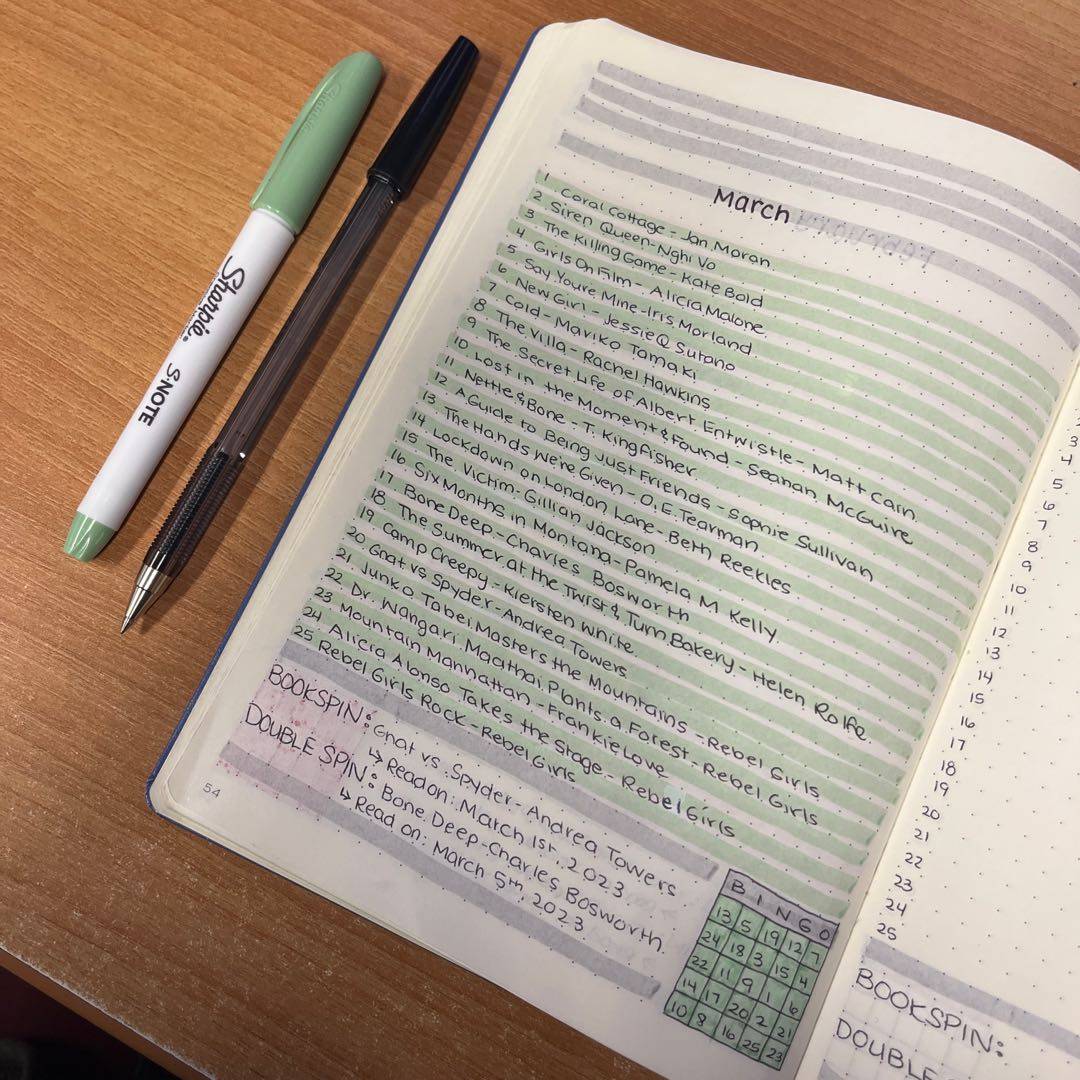 Sharpie
S·NOTE
March
1. Coral Cottage - Jan Moran
2. Siren Queen - Nghi Vo
3. The Killing Game - Kate Bold
4. Girls On Film - Alicia Malone
5. Say Youre Mine - Iris Morland
6. New Girl - Jessie Q Sutano
7. Cold - Mariko Tamaki
8. The Villa - Rachel Hawkins
9. The Secret Life of Albert Entwistle - Matt Carn
10. Lost in the Moment & Found - Seanan McGuire
11. Nettle & Bone - T. Kingfisher
12. A Guide to Being Just Friends - Sophie Sullivan
13. The Hands We're Given - O.E. Tearman
14. Lockdown on London Lane - Beth Reekles
15. The Victim - Gillian Jackson
16. Six Months in Montana - Pamela M Kelly
17. Bone Deep - Charles Bosworth
18. The Summer at the Twist & Turn Bakery - Helen Rolfe
19. Camp Creepy - Kiersten White
20. Gnat vs Spyder - Andrea Towers
21. Junko Tabei Masters the Mountains - Rebel Girls
22. Dr. Wangari Maathai Plants a Forest - Rebel Girls
23. Mountain Manhattan - Frankie Love
24. Alicia Alonso Takes the Stage - Rebel Girls
25. Rebel Girls Rock - Rebel Girls
BOOKSPIN: Gnat vs. Spyder - Andrea Towers
↳ Read on: March 1st, 2023
DOUBLE SPIN: Bone Deep - Charles Bosworth
↳ Read on: March 5th, 2023
54
B I N G O
13 5 19 12 7
24 18 3 15 4
22 11 9 1 6
14 17 20 2 21
10 8 16 25 23
3
4
5
6
7
8
9
10
11
12
13
14
15
16
17
18
19
20
21
22
23
24
25
BOOKSPIN: